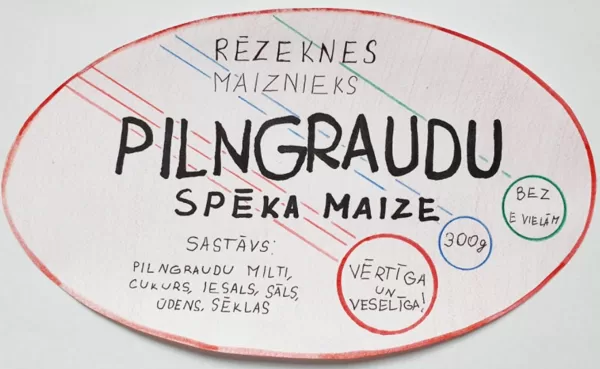 RĒZEKNES
MAIZNIEKS
PILNGRAUDU
SPĒKA MAIZE
SASTĀVS:
PILNGRAUDU MILTI,
CUKURS, IESALS, SĀLS,
ŪDENS, SĒKLAS
VĒRTĪGA
UN
VESELĪGA!
300g
BEZ
E VIELĀM